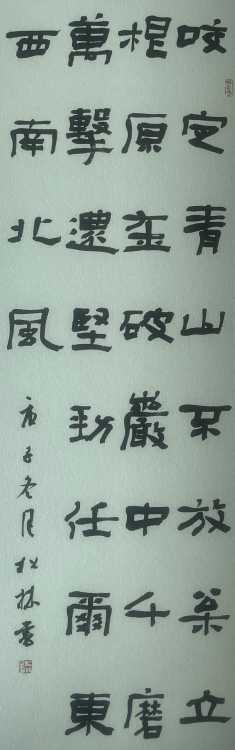 咬定青山不放枀立
根原在破巖中千磨
萬擊還堅勁任爾東
西南北風
庚子冬月松林書